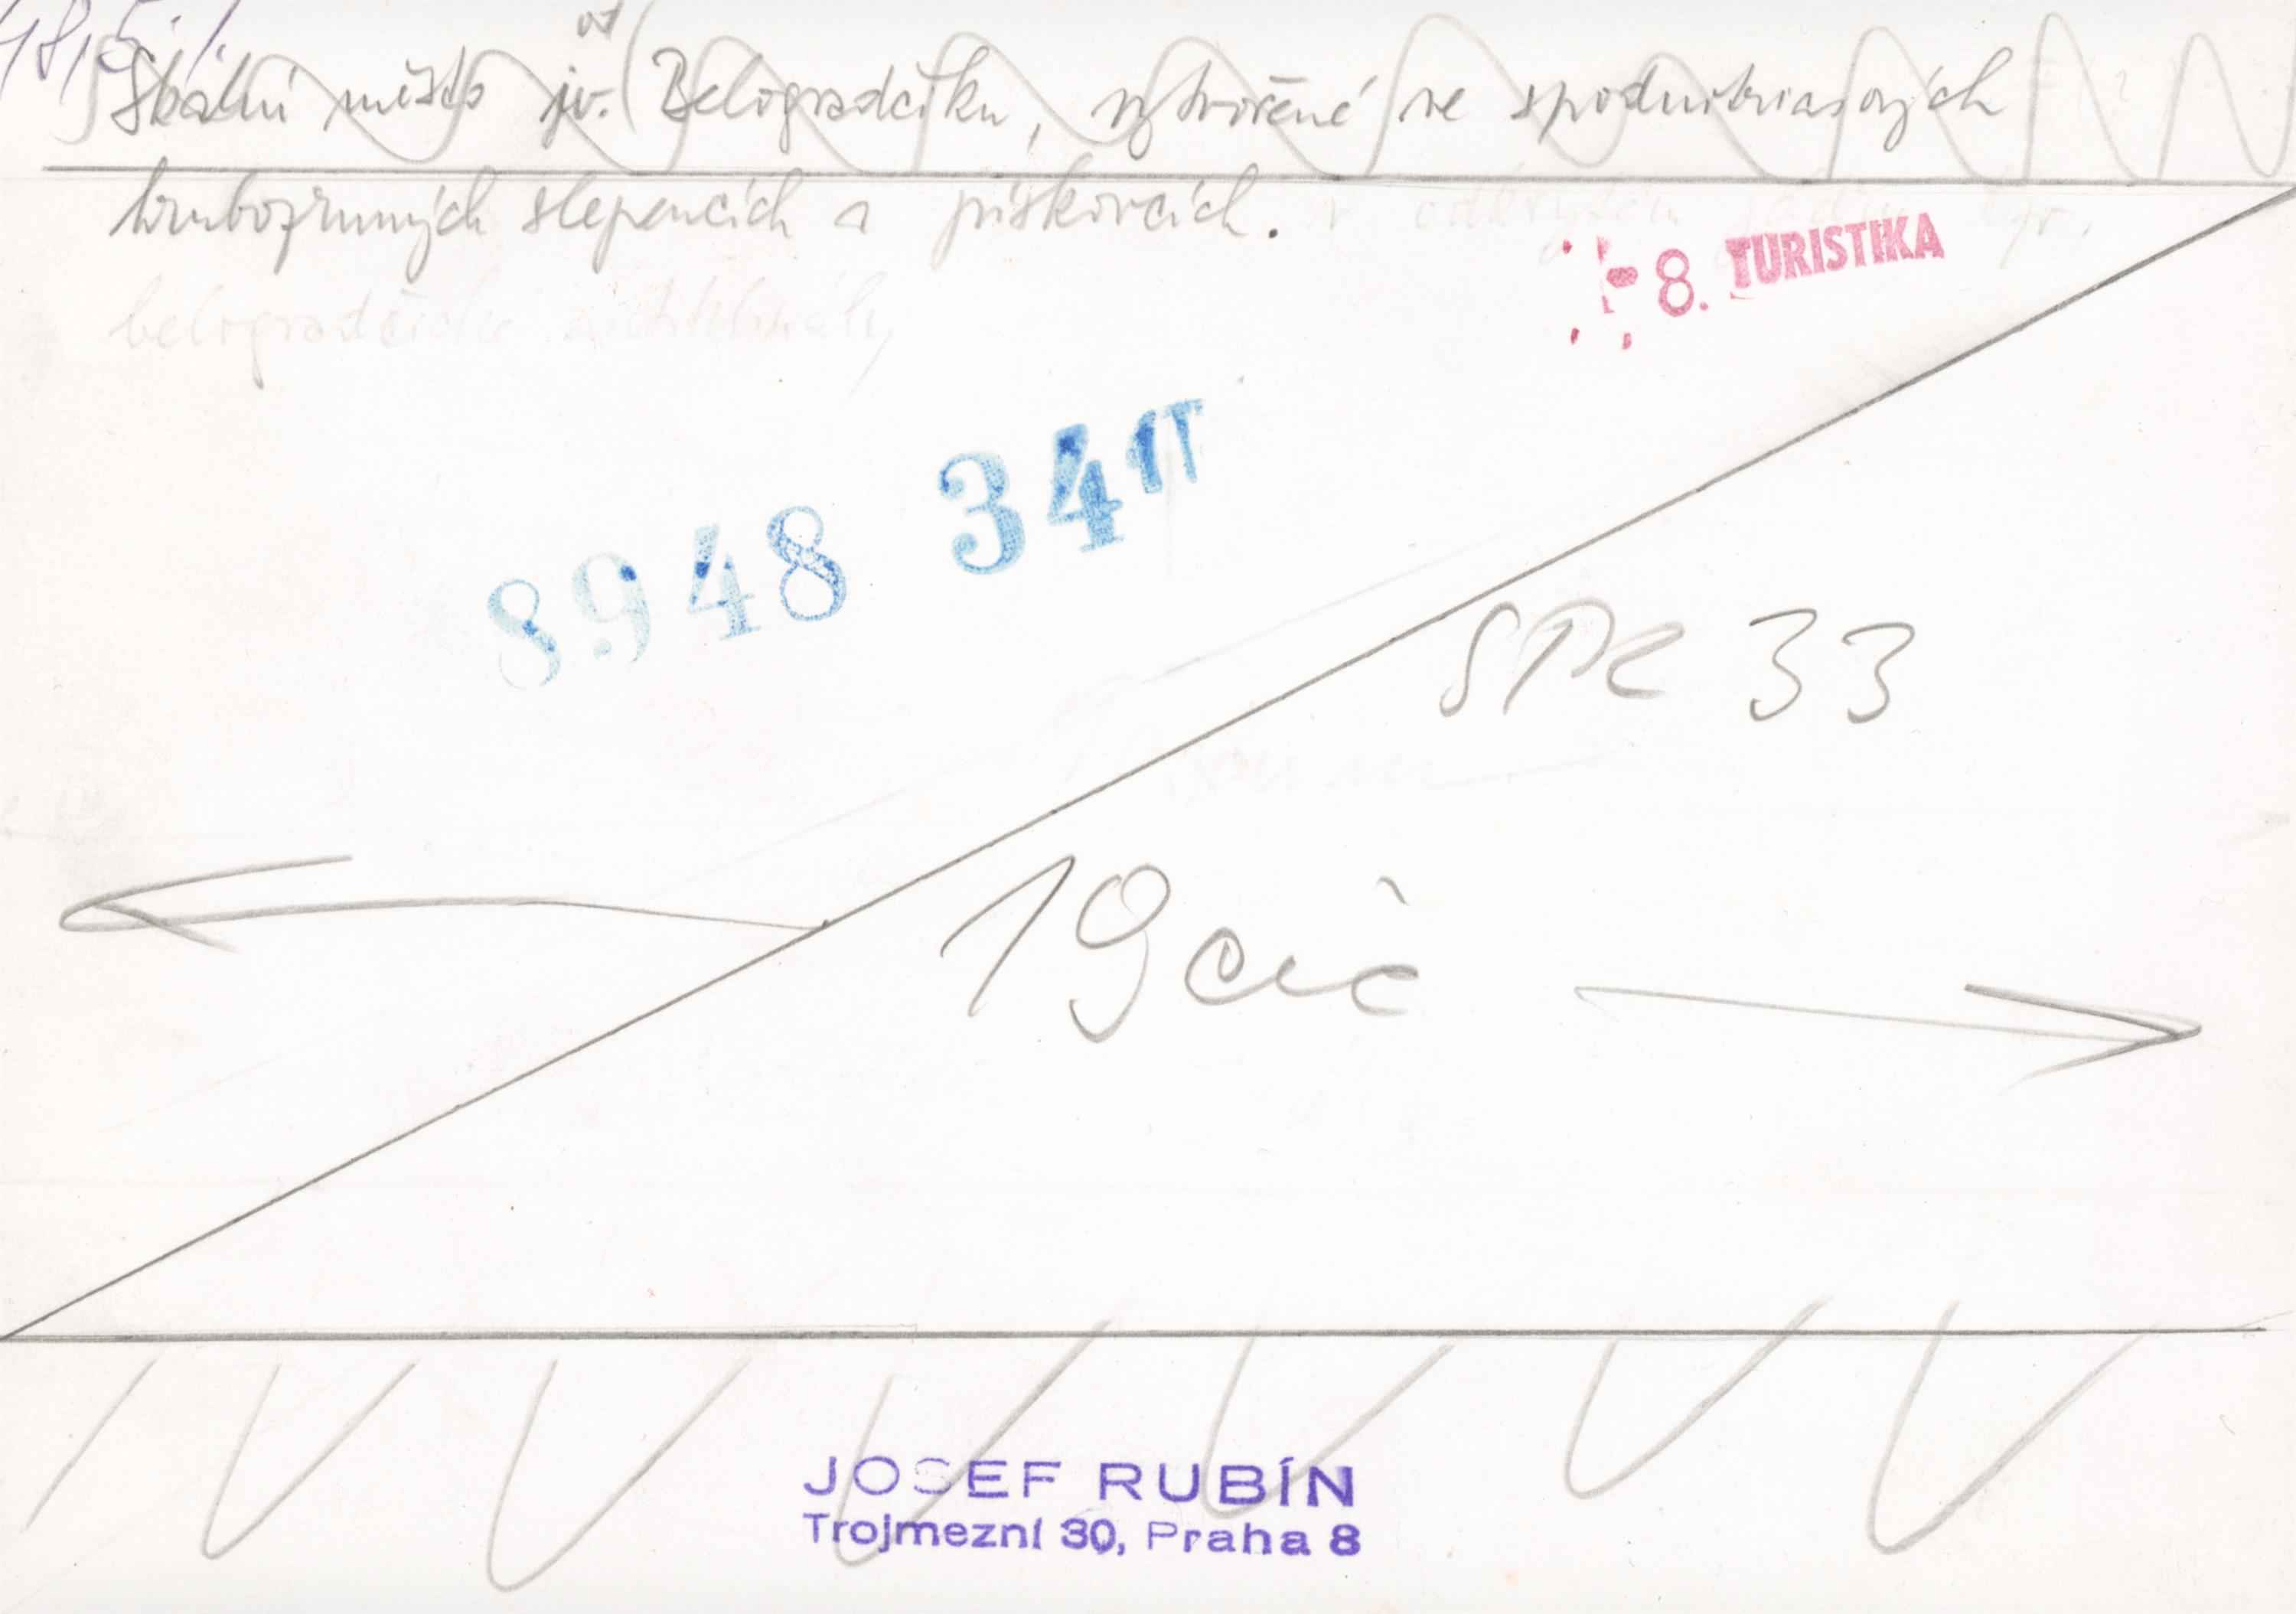 48,5 %
Skalní město jv. od Belogradčiku, vytvořené ve spodnotriasových
hrubozrnných slepencích a pískovcích. v odkrytém jádru
belogradčické antiklinály
8. TURISTIKA
8948 34 II
SPZ 33
19 cic
JOSEF RUBÍN
Trojmezní 30, Praha 8